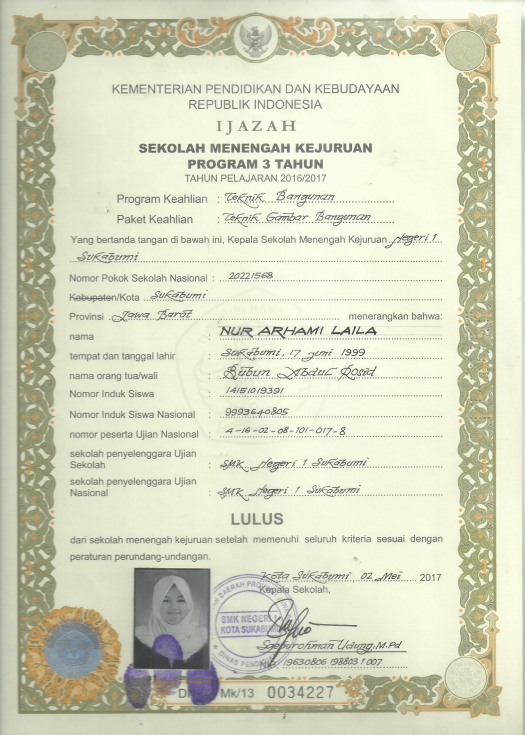 KEMENTERIAN PENDIDIKAN DAN KEBUDAYAAN
REPUBLIK INDONESIA
IJAZAH
SEKOLAH MENENGAH KEJURUAN
PROGRAM 3 TAHUN
TAHUN PELAJARAN 2016/2017
Program Keahlian : Teknik Bangunan
Paket Keahlian : Teknik Gambar Bangunan
Yang bertanda tangan di bawah ini, Kepala Sekolah Menengah Kejuruan Negeri 1
Sukabumi
Nomor Pokok Sekolah Nasional : 20221568
Kabupaten/Kota Sukabumi
Provinsi Jawa Barat menerangkan bahwa:
nama : NUR ARHAMI LAILA
tempat dan tanggal lahir : Sukabumi, 17 Juni 1999
nama orang tua/wali : Bubun Abdul Rosid
Nomor Induk Siswa : 14151019391
Nomor Induk Siswa Nasional : 9993640805
nomor peserta Ujian Nasional : 4-16-02-08-101-017-8
sekolah penyelenggara Ujian
Sekolah : SMK Negeri 1 Sukabumi
sekolah penyelenggara Ujian
Nasional : SMK Negeri 1 Sukabumi
LULUS
dari sekolah menengah kejuruan setelah memenuhi seluruh kriteria sesuai dengan
peraturan perundang-undangan.
Kota Sukabumi, 02 Mei 2017
Kepala Sekolah,
SMK NEGERI 1
KOTA SUKABUMI
Saepurohman Udung, M.Pd
NIP 19630806 198803 1 007
Mk/13 0034227